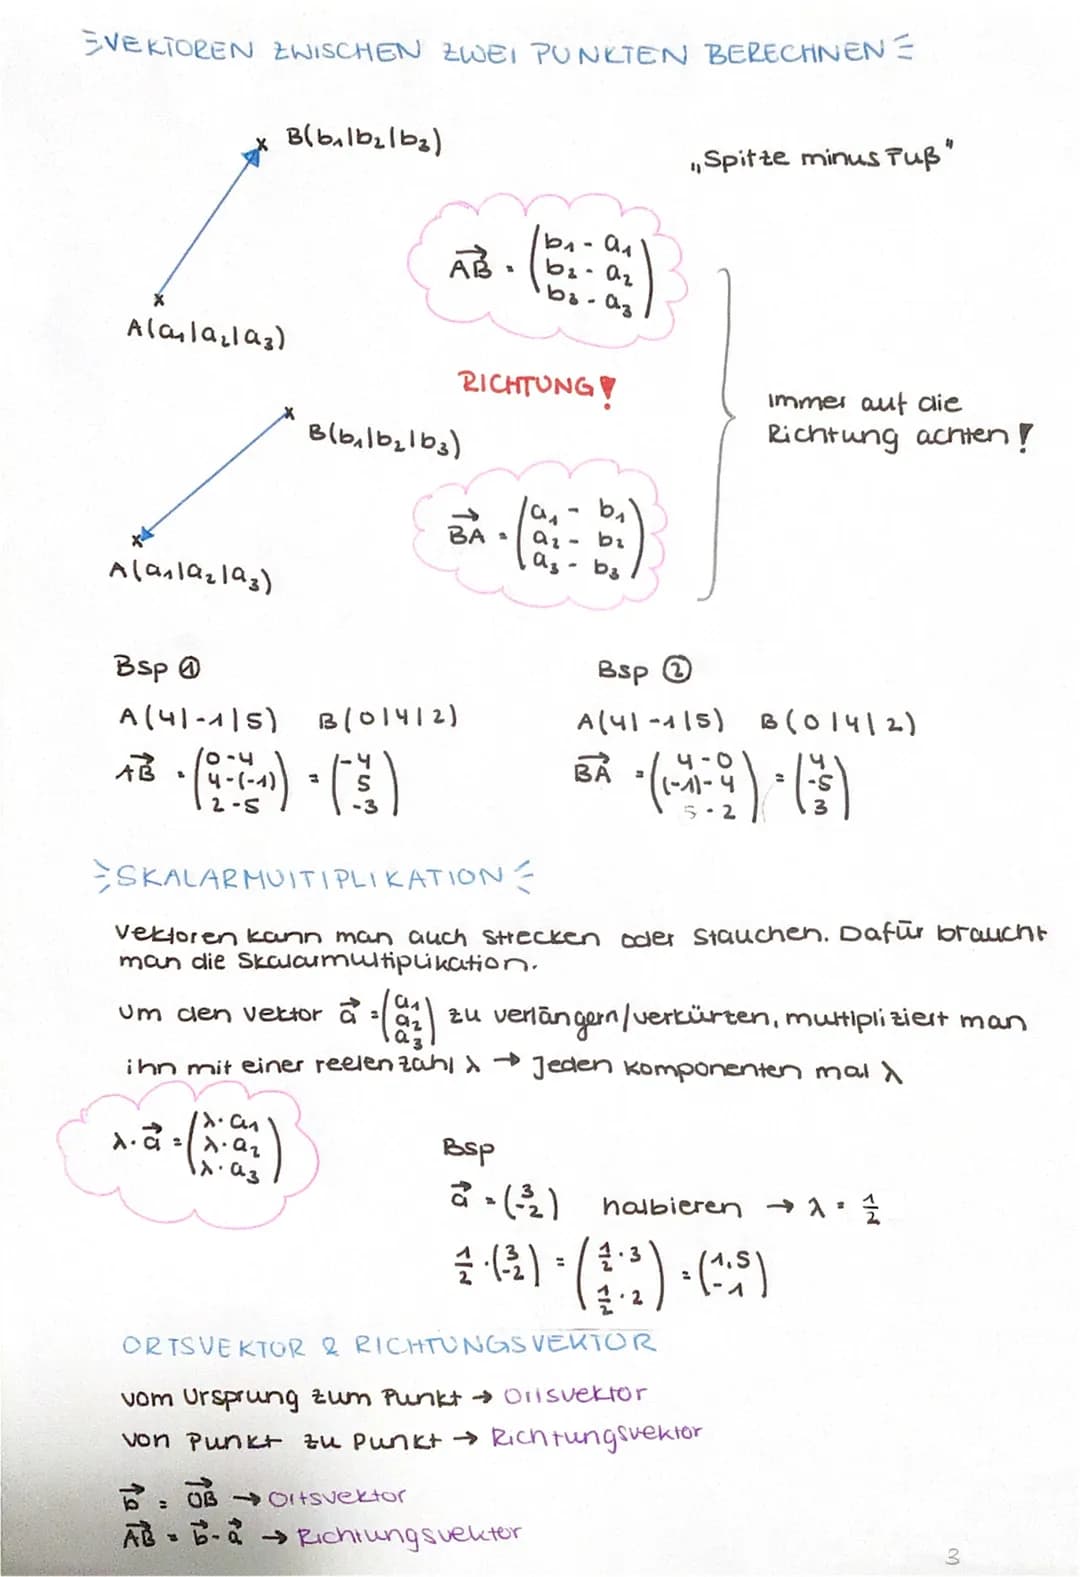 VEKTOREN ZWISCHEN ZWEI PUNKTEN BERECHNEN
B(b₁|b₂|b₃)
„Spitze minus Fuß"
A(a₁|a₂|a₃)
AB⃗ = (b₁ - a₁
b₂ - a₂
b₃ - a₃)
RICHTUNG!
Immer auf die
Richtung achten!
B(b₁|b₂|b₃)
A(a₁|a₂|a₃)
BA⃗ = (a₁ - b₁
a₂ - b₂
a₃ - b₃)
Bsp ①
A(4|-1|5) B(0|4|2)
AB⃗ = (0-4
4-(-1)
2-5) = (-4
5
-3)
Bsp ②
A(4|-1|5) B(0|4|2)
BA⃗ = (4-0
(-1)-4
5-2) = (4
-5
3)
SKALARMUITIPLIKATION
Vektoren kann man auch strecken oder stauchen. Dafür braucht
man die Skalarmultiplikation.
Um den Vektor a⃗ = (a₁ a₂ a₃) zu verlängern/verkürten, multipliziert man
ihn mit einer reelen zahl λ → Jeden Komponenten mal λ
λ·a⃗ = (λ·a₁
λ·a₂
λ·a₃)
Bsp
a⃗ = (3 -2) halbieren → λ = ½
½·(3 -2) = (½·3 ½·2) = (1,5 -1)
ORTSVEKTOR & RICHTUNGSVEKTOR
vom Ursprung zum Punkt → Ortsvektor
von Punkt zu Punkt → Richtungsvektor
b⃗ = OB⃗ → Ortsvektor
AB⃗ = b⃗-a⃗ → Richtungsvektor
3